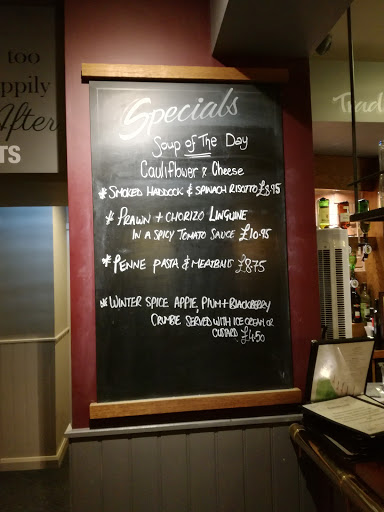 too
ppily
After
TS
Specials
Soup of The Day
Cauliflower & Cheese
* Smoked Haddock & Spinach Risotto £8.95
* Prawn + Chorizo Linguine
in a Spicy Tomato Sauce £10.95
* Penne Pasta & Meatballs £8.75
* Winter Spice Apple, Plum + Blackberry
Crumble served with ice cream or
custard £4.50
Trad